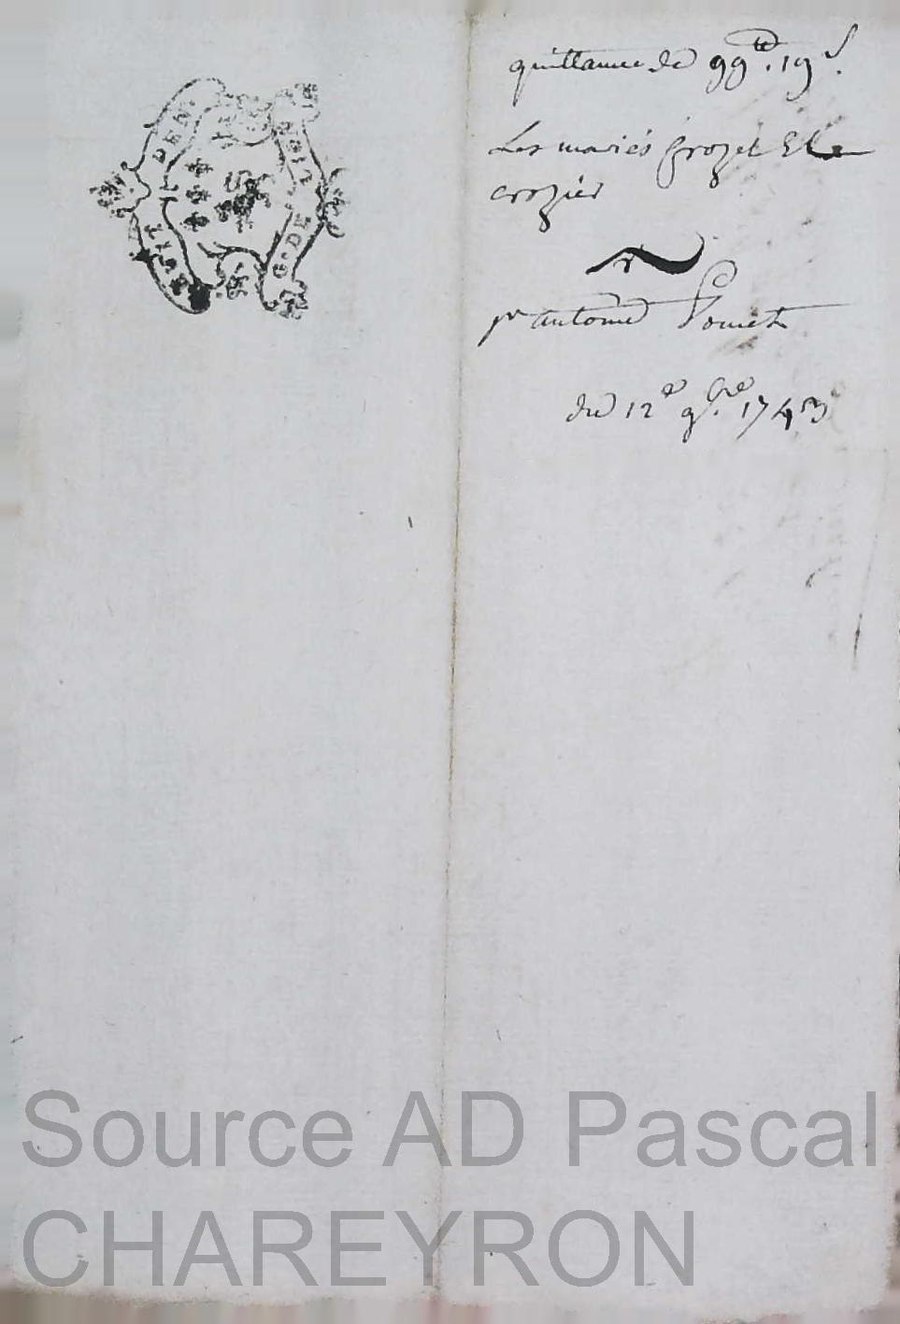 HUIT DEN.
G. DE
quittance de 99tt. 19s.
Les mariés grozet Et
crozier
A
pr antoine Pomet
du 12e 9bre 1743
Source AD Pascal
CHAREYRON